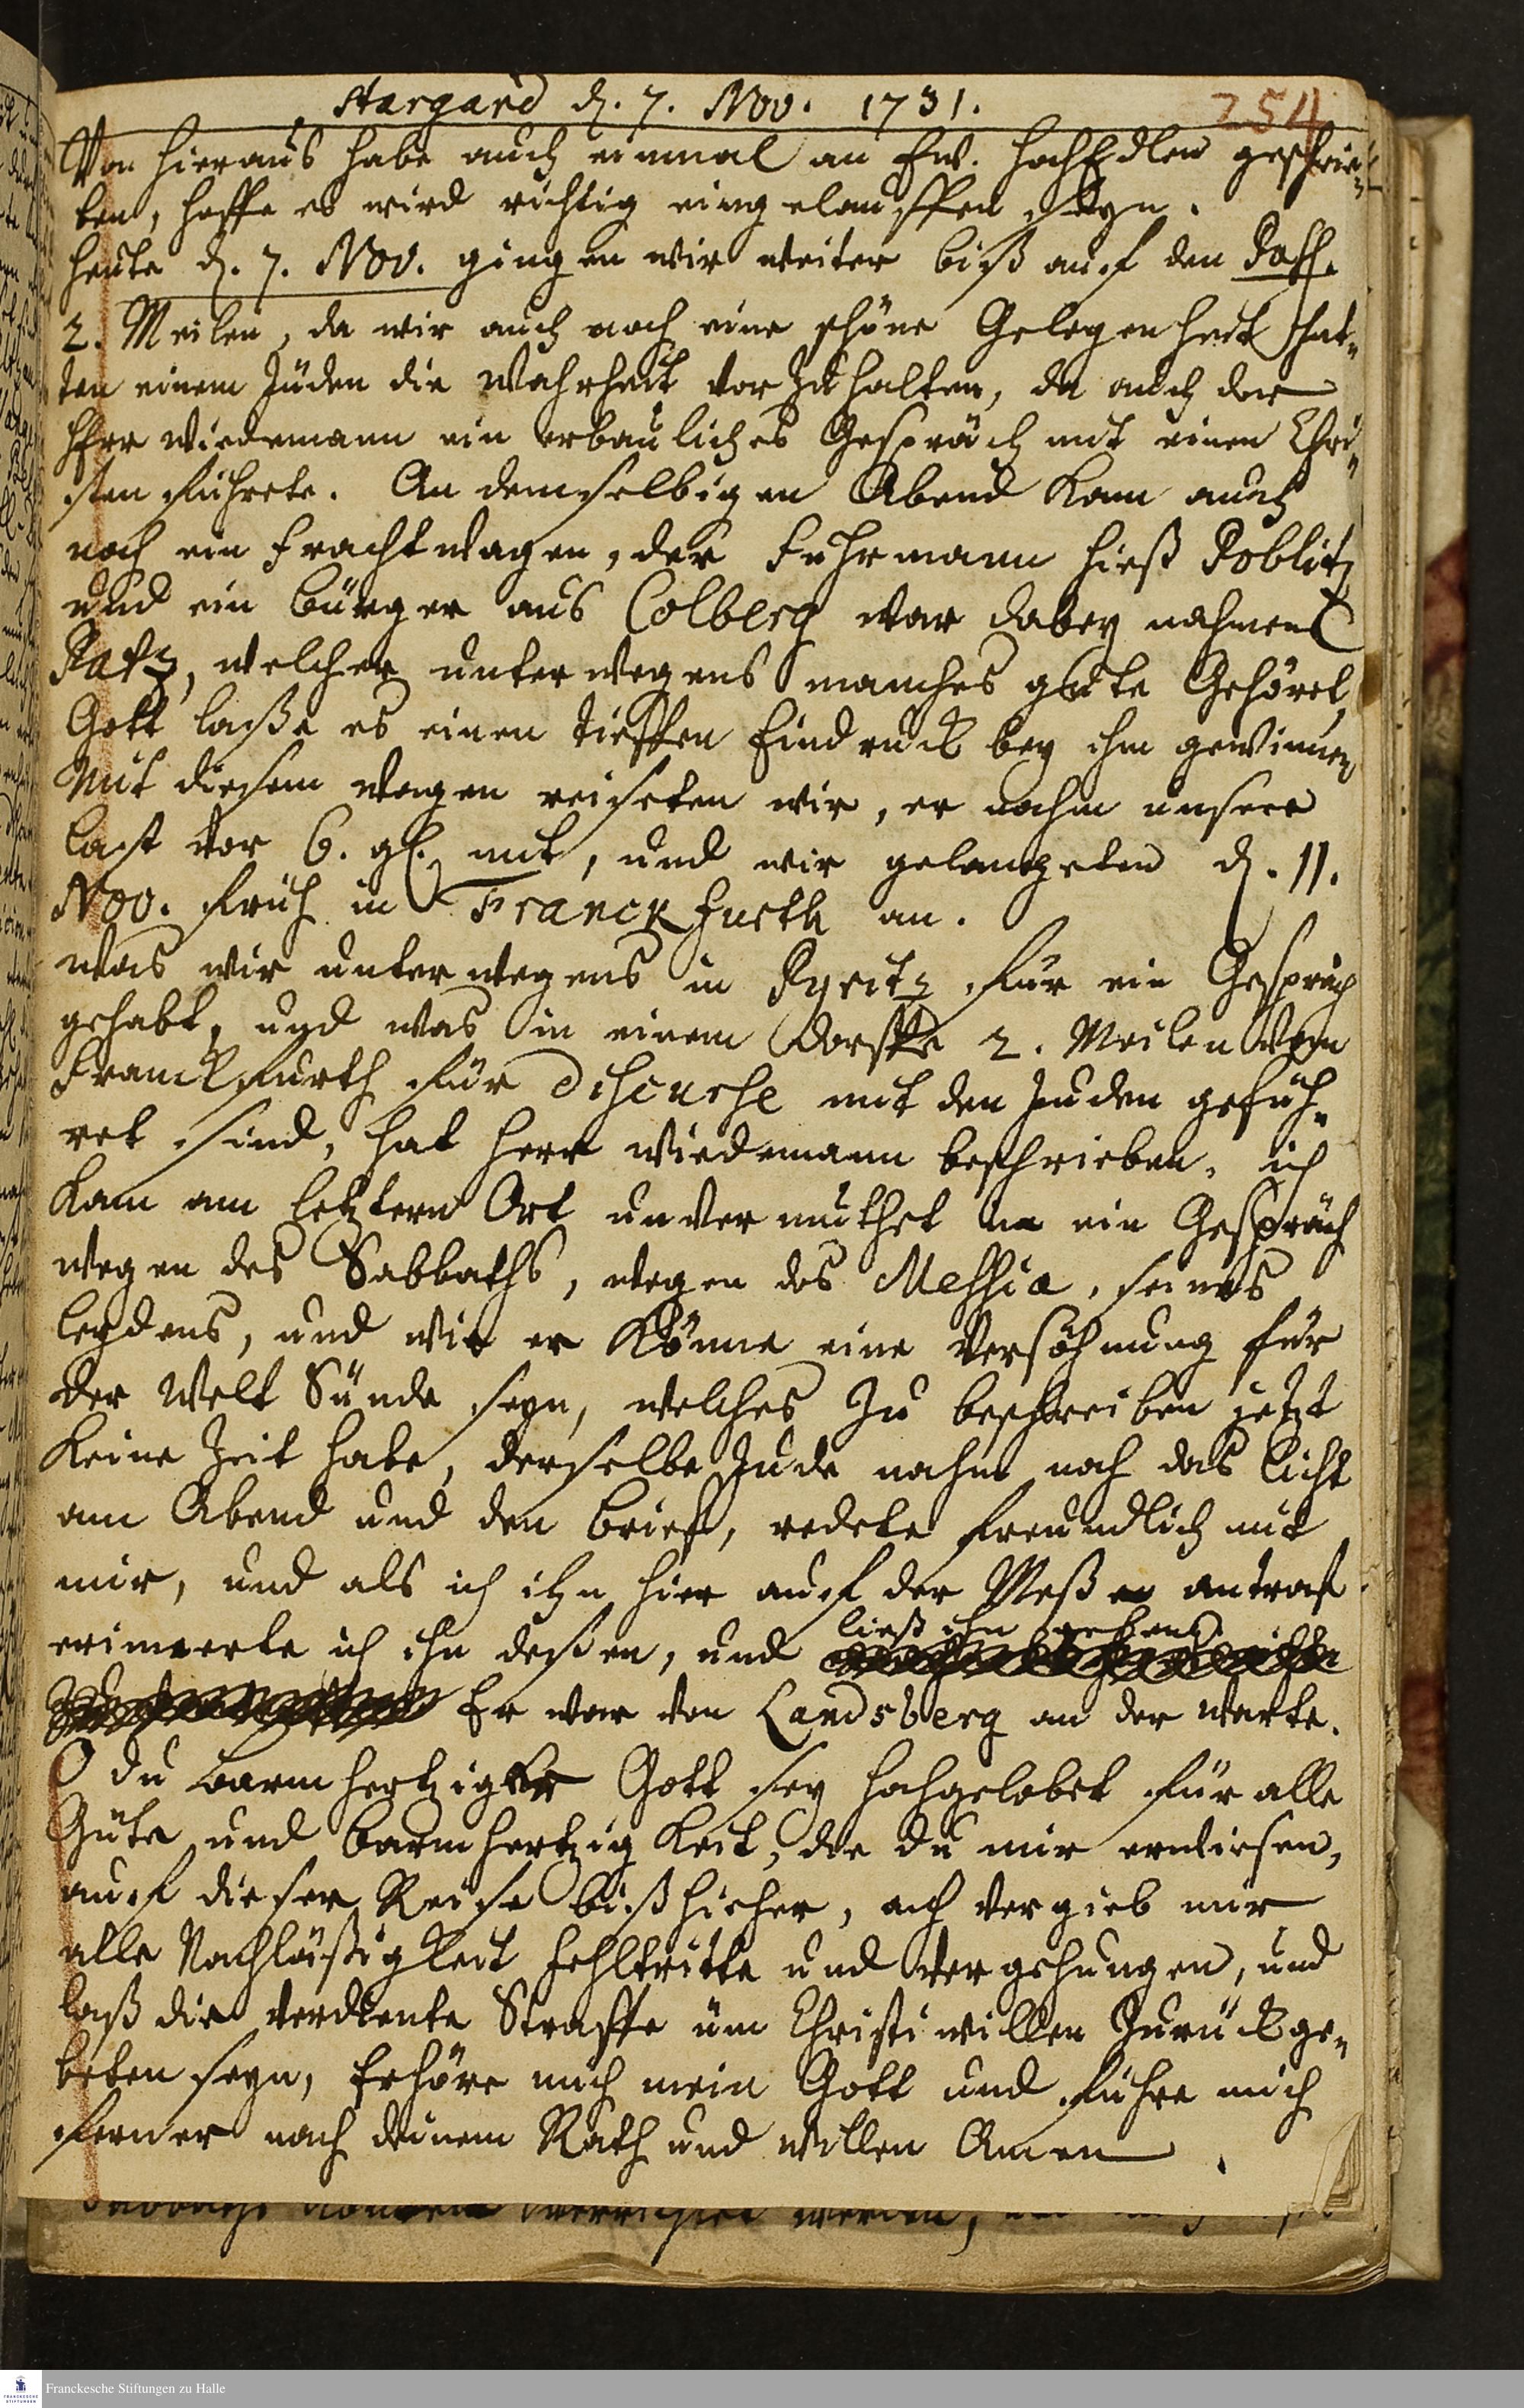 Stargard d. 7. Nov. 1731.
254
Von hieraus habe auch einmal an Ew. HochEdlen geschrie-
ben, hoffe es wird richtig eingelauffen seyn.
heute d. 7. Nov. gingen wir weiter biß auf den Paß.
2. Meilen, da wir auch noch eine schöne Gelegenheit hat-
ten einem Juden die Wahrheit vor zu halten, da auch der
Herr Wiedemann ein erbauliches Gespräch mit einen Chri-
sten führete. An demselbigen Abend kam auch
noch ein Frachtwagen, der Fuhrmann hieß Poblitz
und ein Bürger aus Colberg war dabey nahmens
Ratz, welcher unterwegens manches gute Gehöret,
Gott laße es einen tieffen Eindruck bey ihm gewinnen
Mit diesem Wagen reiseten wir, er nahm unsere
Last vor 6. gl. mit, und wir gelangeten d. 11.
Nov. früh in Franckfurth an.
Was wir unterwegens in Pyritz für ein Gespräch
gehabt, und was in einem Dorffe 2. Meilen von
Franckfurth für Discurse mit den Juden gefüh-
ret sind, hat Herr Wiedemann beschrieben, ich
kam am letztern Ort unvermuthet in ein Gespräch
wegen des Sabbaths, wegen des Messia, seines
Leydens, und wie er könne eine Versöhnung für
der Welt Sünde seyn, welches zu beschreiben jetzt
keine Zeit habe, derselbe Jude nahm noch das Licht
am Abend und den Brief, redete freundlich mit
mir, und als ich ihn hier auf der Meße antraf
erinnerte ich ihn deßen, und
ließ ihn gehen.
Er war von Landsberg an der Warte.
O du barmhertziger Gott sey hochgelobet für alle
Güte und Barmhertzigkeit, die du mir erwiesen,
auf dieser Reise biß hieher, ach vergieb mir
alle Nachläßigkeit Fehltritte und Vergehungen, und
laß die verdiente Straffe üm Christi willen zurück ge-
beten seyn, Erhöre mich mein Gott und führe mich
ferner nach deinem Rath und Willen Amen.
Franckesche Stiftungen zu Halle